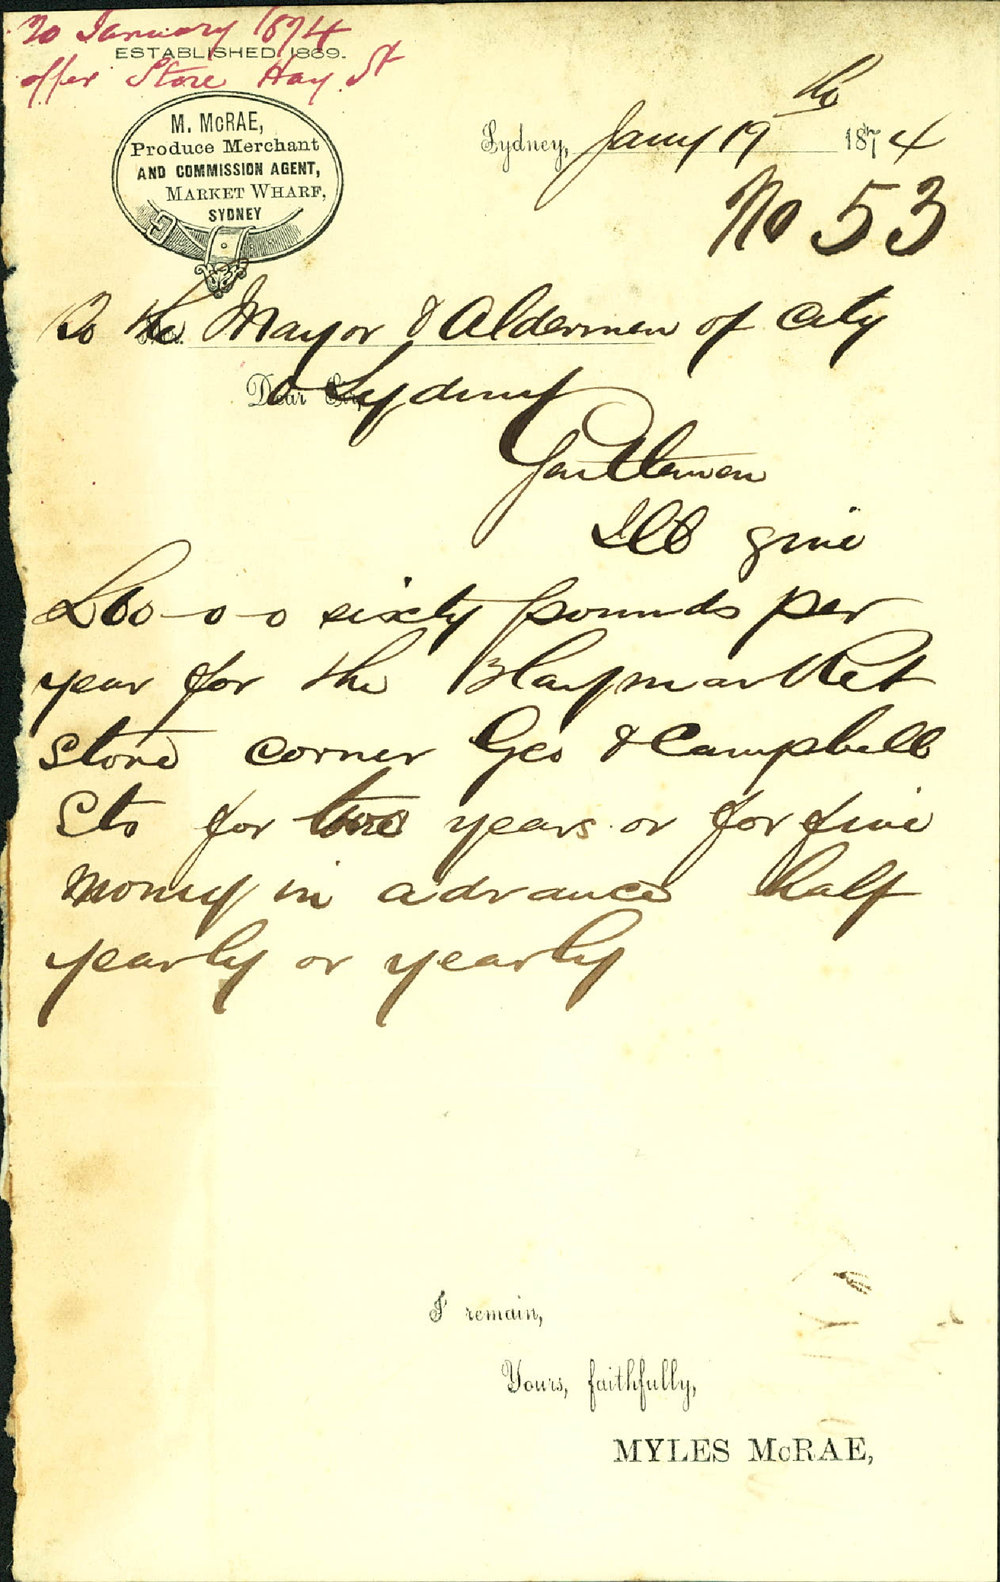 20 January 1874
ESTABLISHED 1869.
offer Store Hay St
M. McRAE,
Produce Merchant
AND COMMISSION AGENT,
MARKET WHARF,
SYDNEY
Sydney, Jany 19th 1874
No 53
To the Mayor & Aldermen of City
Dear Sir,
Sydney
Gentlemen
Ill give
£60-0-0 sixty pounds per
year for the Haymarket
Store corner Geo & Campbell
Sts for two years or for five
money in advance half
yearly or yearly
I remain,
Yours, faithfully,
MYLES McRAE,